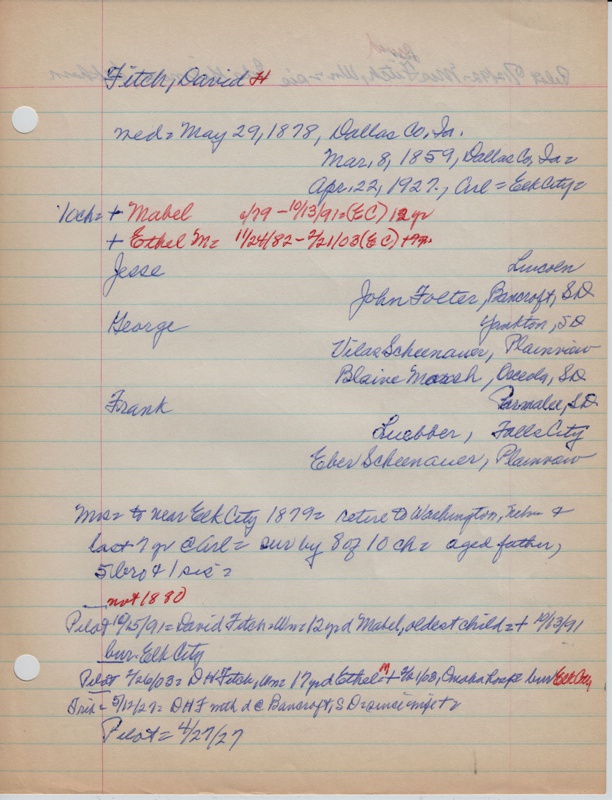 Fitch, David H
wed= May 29, 1878, Dallas Co, Ia.
Mar, 8, 1859, Dallas Co, Ia=
Apr. 22, 1927., Arl= Elk City=
10ch= + Mabel /79 - 10/13/91=(EC) 12 yr
+ Ethel M= 11/24/82 - 2/21/03(EC)
Jesse Lincoln
John Folter, Bancroft, SD
George Yankton, SD
Vilas Scheenauer, Plainview
Blaine Marsh, Osceola, SD
Frank Parmalee, SD
Luebber, Falls City
Eber Scheenauer, Plainview
Mrs= to near Elk City 1879= retire to Washington, Nebr +
last 7 yr @ Arl= sur by 8 of 10 ch= aged father,
5 bro + 1 sis=
not 1880
Pilot 10/25/91= David Fitch= Wn= 12 yrd Mabel, oldest child= + 10/13/91
bur. Elk City
Pilot 2/26/03= D H Fitch, Wn= 17 yrd Ethel M + 2/21/03, Omaha Hosp= bur Elk City
Trib= 5/12/27= D H F
Pilot= 4/27/27